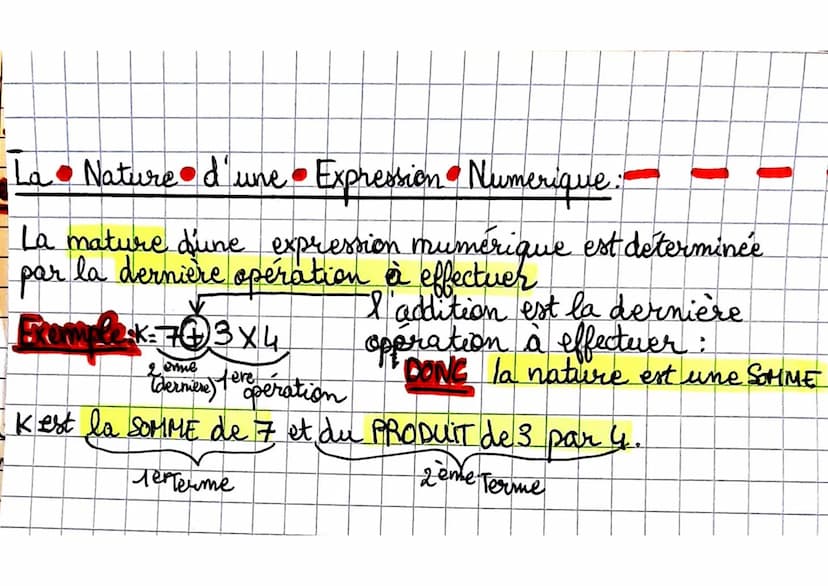 La • Nature • d'une • Expression • Numerique :
La nature d'une expression numérique est déterminée
par la dernière opération à effectuer
l'addition est la dernière
Exemple: K = 7 + 3 × 4 opération à effectuer :
DONC la nature est une SOMME
2ème (dernière) 1ere opération
K est la SOMME de 7 et du PRODUIT de 3 par 4.
1er Terme 2ème Terme